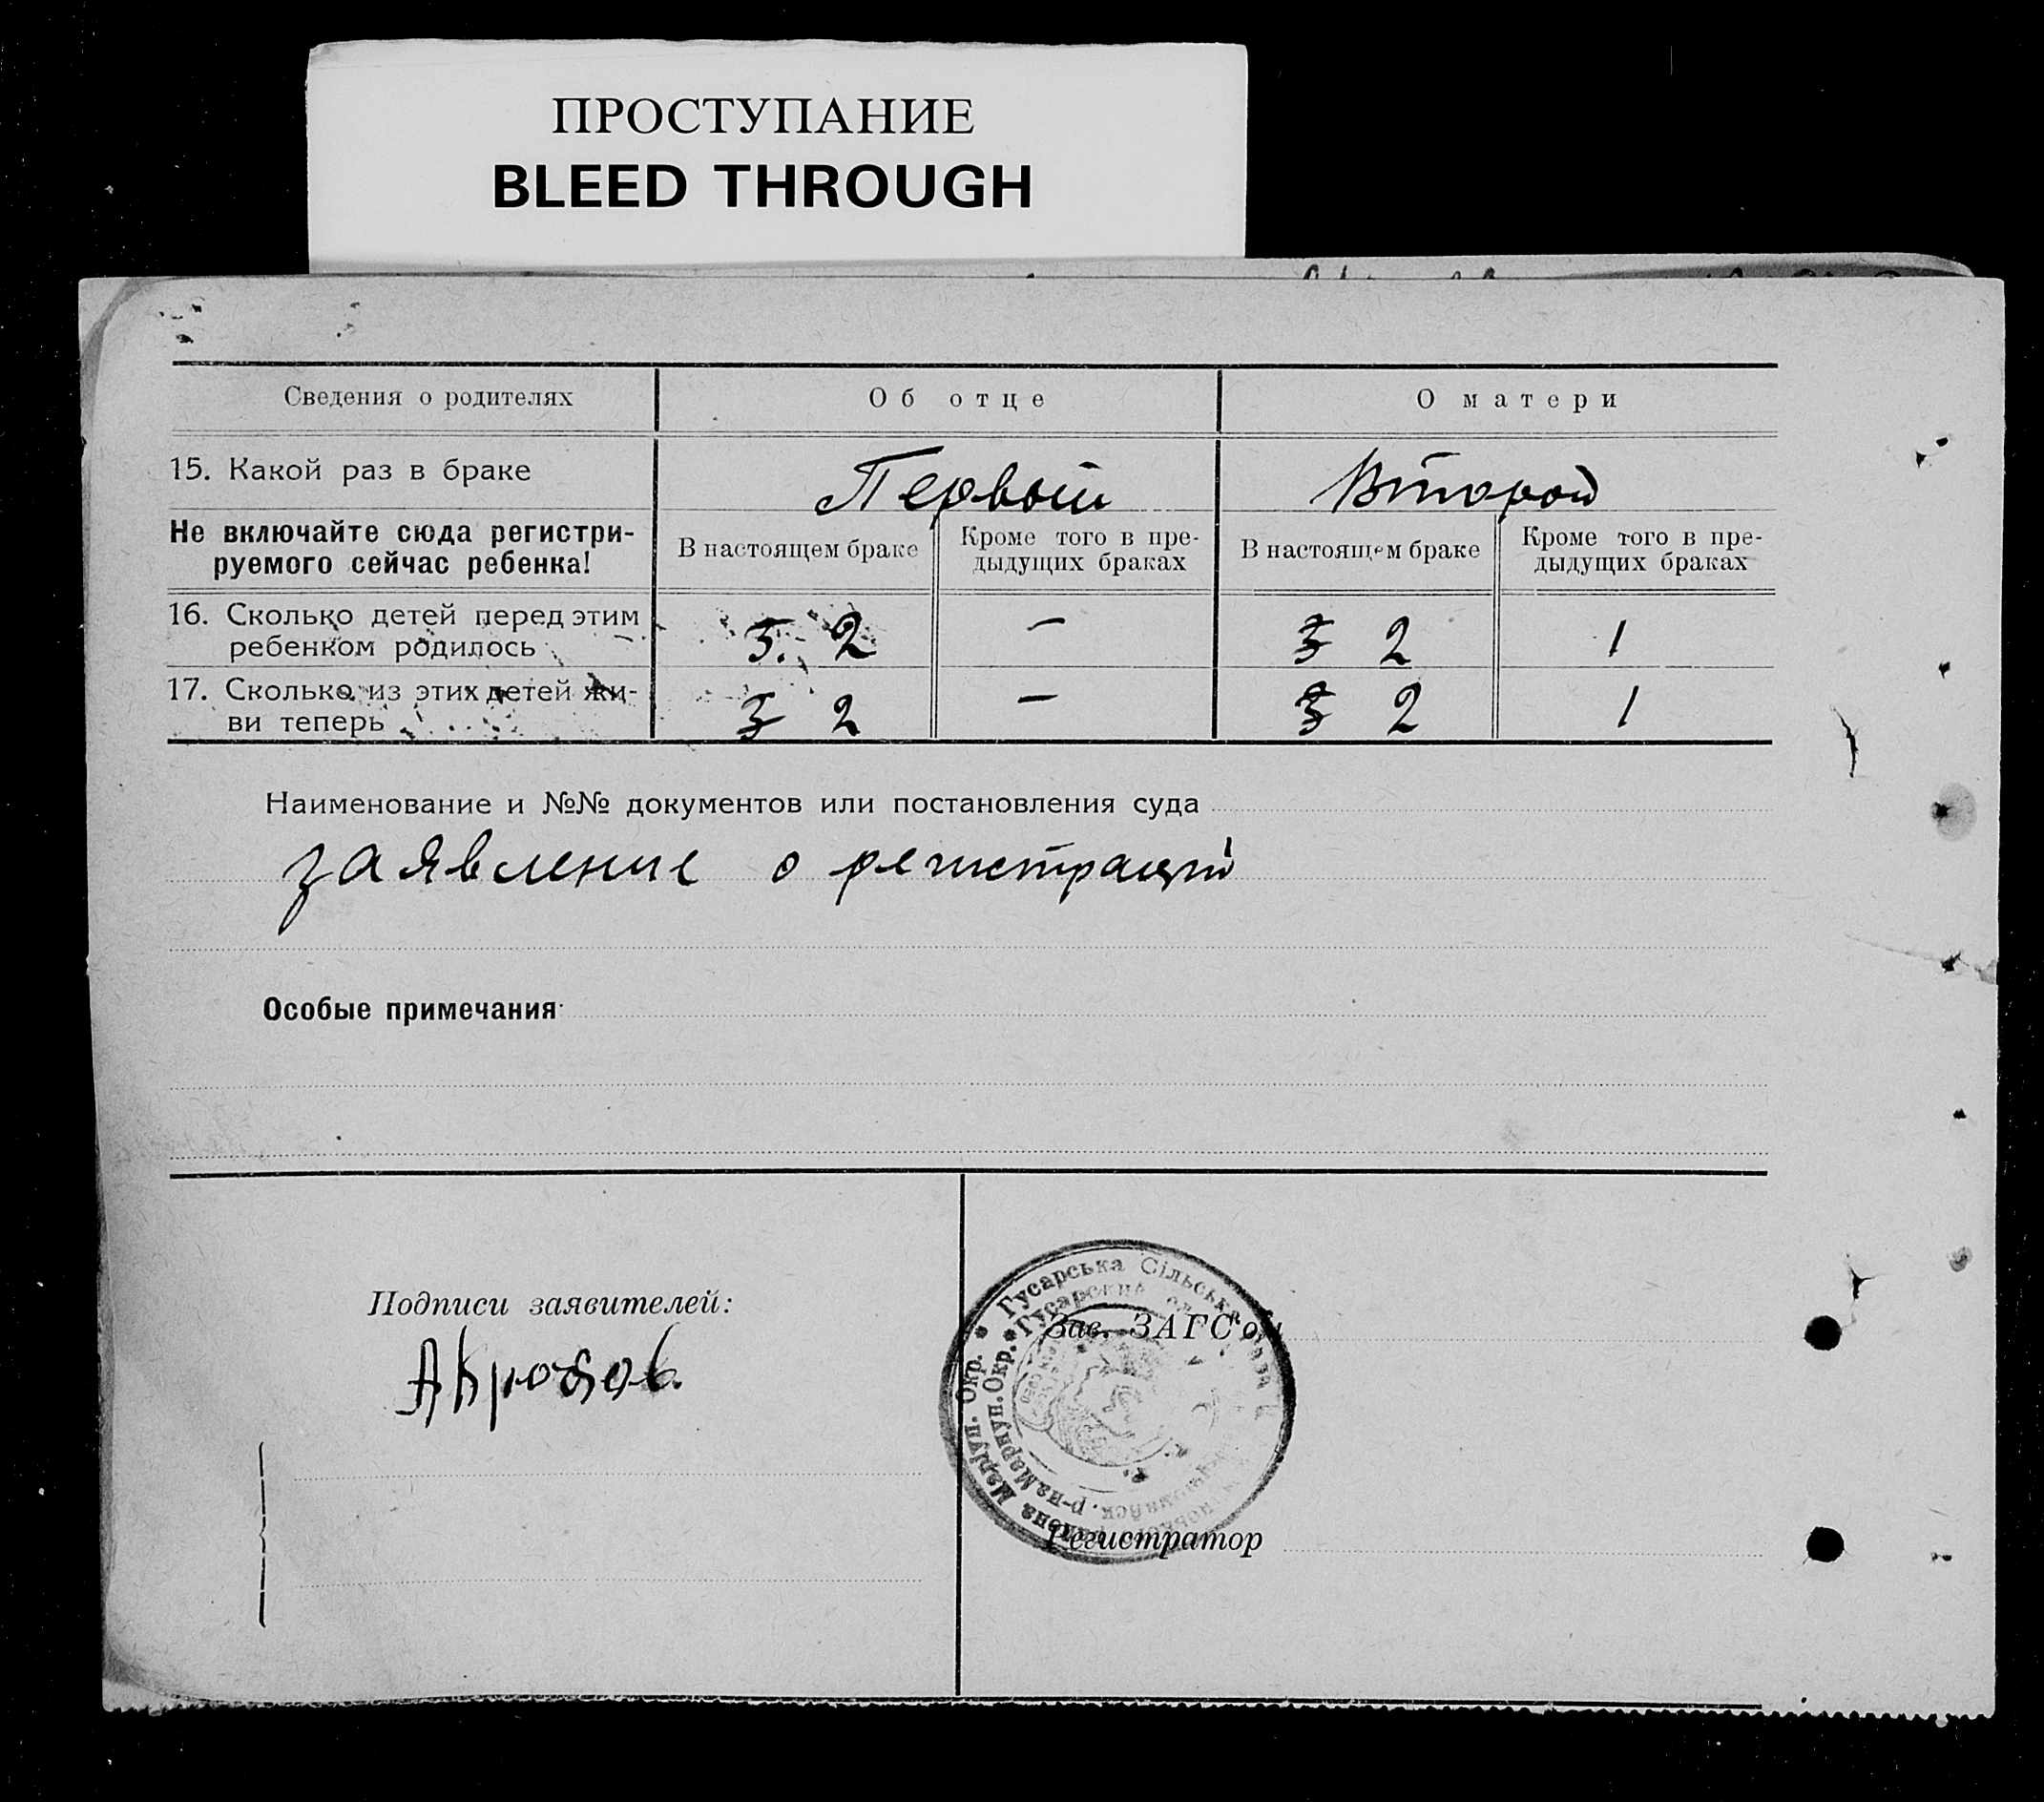 ПРОСТУПАНИЕ
BLEED THROUGH
Сведения о родителях
Об отце
О матери
15. Какой раз в браке
Первый
Второй
Не включайте сюда регистри-
руемого сейчас ребенка!
В настоящем браке
Кроме того в пре-
дыдущих браках
В настоящем браке
Кроме того в пре-
дыдущих браках
16. Сколько детей перед этим
ребенком родилось
3. 2
—
3 2
1
17. Сколько из этих детей жи-
ви теперь
3 2
—
3 2
1
Наименование и №№ документов или постановления суда
заявление о регистраций
Особые примечания
Подписи заявителей:
Зав. ЗАГС'ом
Гусарська Сільська
района Маріуп. Окр.
Гусарский
р-на Мариуп. Окр.
Регистратор